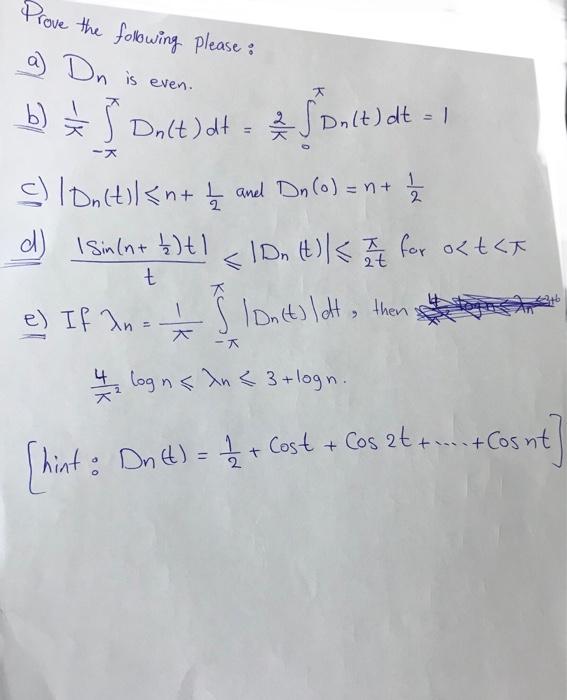 Prove the following please:
a) Dn is even.
b) 1/π ∫_{-π}^{π} Dn(t)dt = 2/π ∫_{0}^{π} Dn(t)dt = 1
c) |Dn(t)| ⩽ n + 1/2 and Dn(0) = n + 1/2
d) |Sin(n + 1/2)t| / t ⩽ |Dn(t)| ⩽ π/2t for 0<t<π
e) If λn = 1/π ∫_{-π}^{π} |Dn(t)|dt, then
4/π² log n ⩽ λn ⩽ 3 + log n.
[hint: Dn(t) = 1/2 + Cost + Cos 2t + ..... + Cos nt]